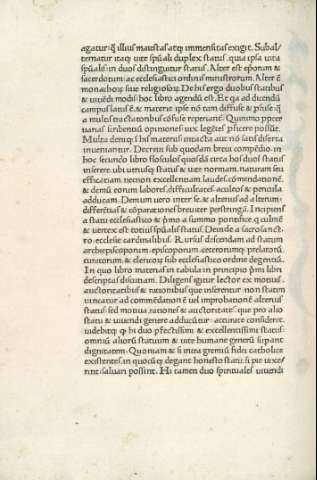 agatur: q̃ illius maiestas atq; immensitas exigit. Subal/
ternatur itaq; uite spũali duplex status. quia ipsa uita
spũalis in duos distinguitur status. Alter est eporum &
sacerdotum: ac ecclesiastici ordinis ministrorum. Alter ẽ
monachoꝝ siue religiosoꝝ. De his ergo duobus statibus
& uiuẽdi modis hoc libro agendũ est. Et qa ad dicendũ
campus latus ẽ. & materie ipse nõ tam diffuse & ꝓfuse: q̃
a multis tractatoribus cõfuse reperiant᷑. Quinimo ꝓpter
uarias scribentiũ opiniones uix legẽtes ꝑficere possũt.
Multa deniq; i his materiis intacta aut nõ satis diserta
inueniantur. Decreui sub quodam breui compẽdio in
hoc secundo libro flosculos quosdã circa hos duos status
inserere. ubi utriusq; status & uite normam. naturam seu
efficatiam. necnon excellentiam. laudes. cõmendationẽ.
& demũ eorum labores. difficultates. aculeos & pericula
adducam. Demum uero inter se. & alterius ad alterum
differẽtias & cõparationes breuiter perstringã. Incipiens
a statu ecclesiastico & ꝑmo a summo põtifice. q culmẽ
& uertex est totius spũalis status. Deinde a sacrosanct.
ro. ecclesie cardinalibus. Rursus discendam ad statum
archiepiscoporum. episcoporum. ceterorumq; prelatorũ.
curatorum. & clericoꝝ sub ecclesiastico ordine degentiũ.
In quo libro materias in tabula in principio ꝑmi libri
descriptas discutiam. Diligens igitur lector ex motiuis.
auctoritatibus & rationibus que inserentur. non statim
uincatur ad commẽdationẽ uel improbationẽ alterius
status: sed motiua. rationes & auctoritates. que pro alio
statu & uiuendi genere adducũtur. accurate consideret.
iudebitq; ꝙ hi duo ꝑfectissimi & excellentissimi status:
omniũ alioꝝ statuum & uite humane generũ supant
dignitatem. Quoniam & si intra gremiũ fidei catholice
existentes. in quocũq; degant honesto statu. si pie uixe/
rint: saluari possint. Hi tamen duo spirituales uiuendi